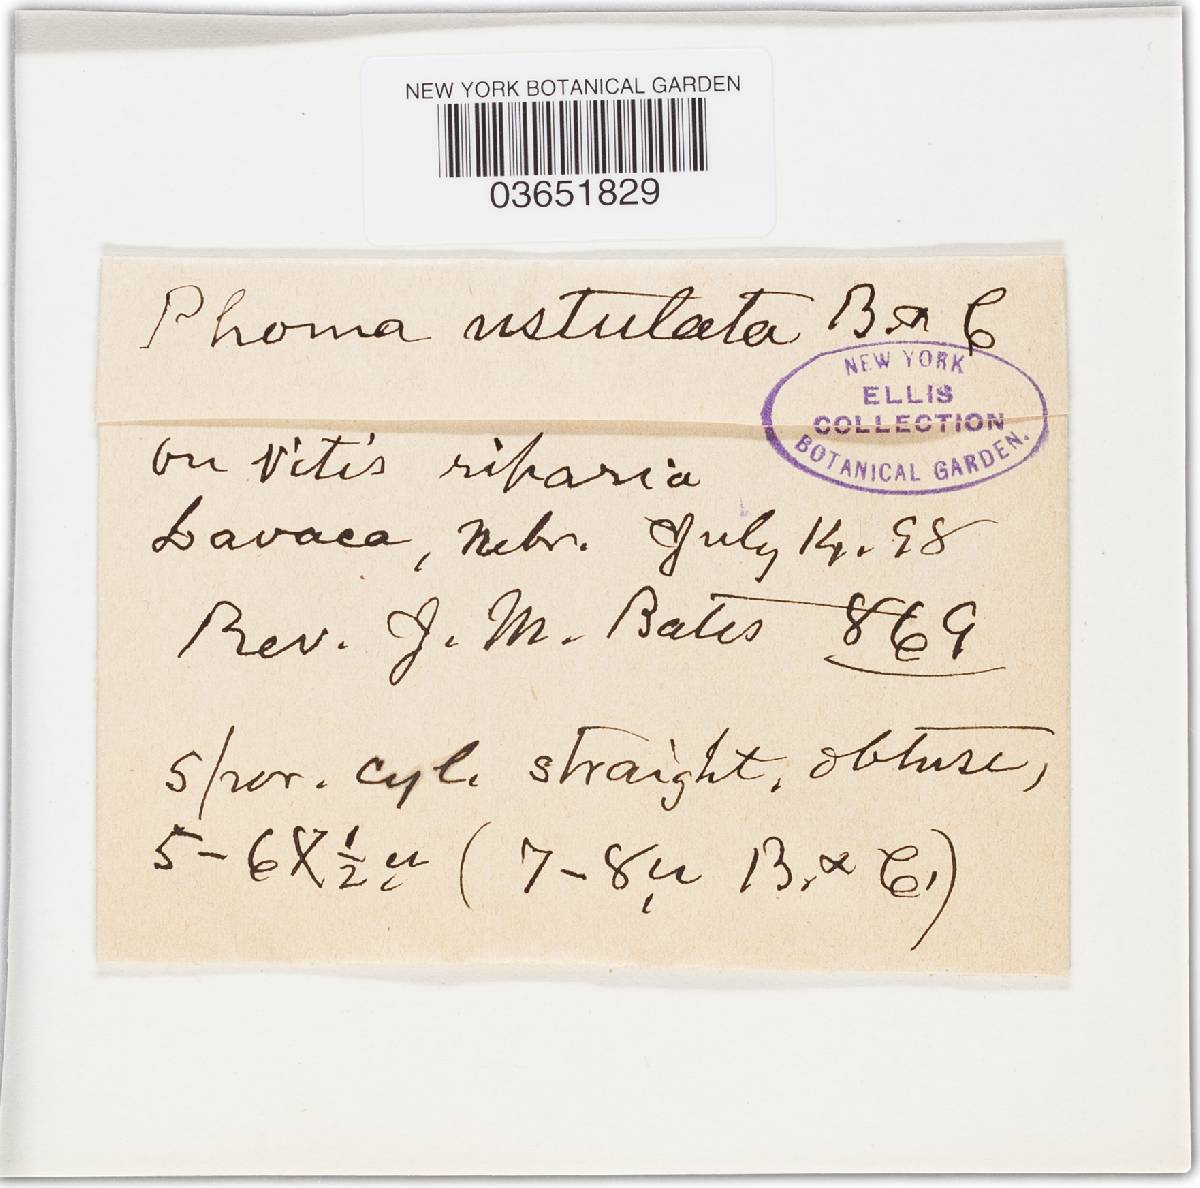 NEW YORK BOTANICAL GARDEN
03651829
Phoma ustulata B. & C
NEW YORK
ELLIS
COLLECTION
BOTANICAL GARDEN.
on Vitis riparia
Lavaca, Nebr. July 14. 98
Rev. J. M. Bates 869
spor. cyl. straight, obtuse,
5-6X½µ (7-8µ B. & C.)